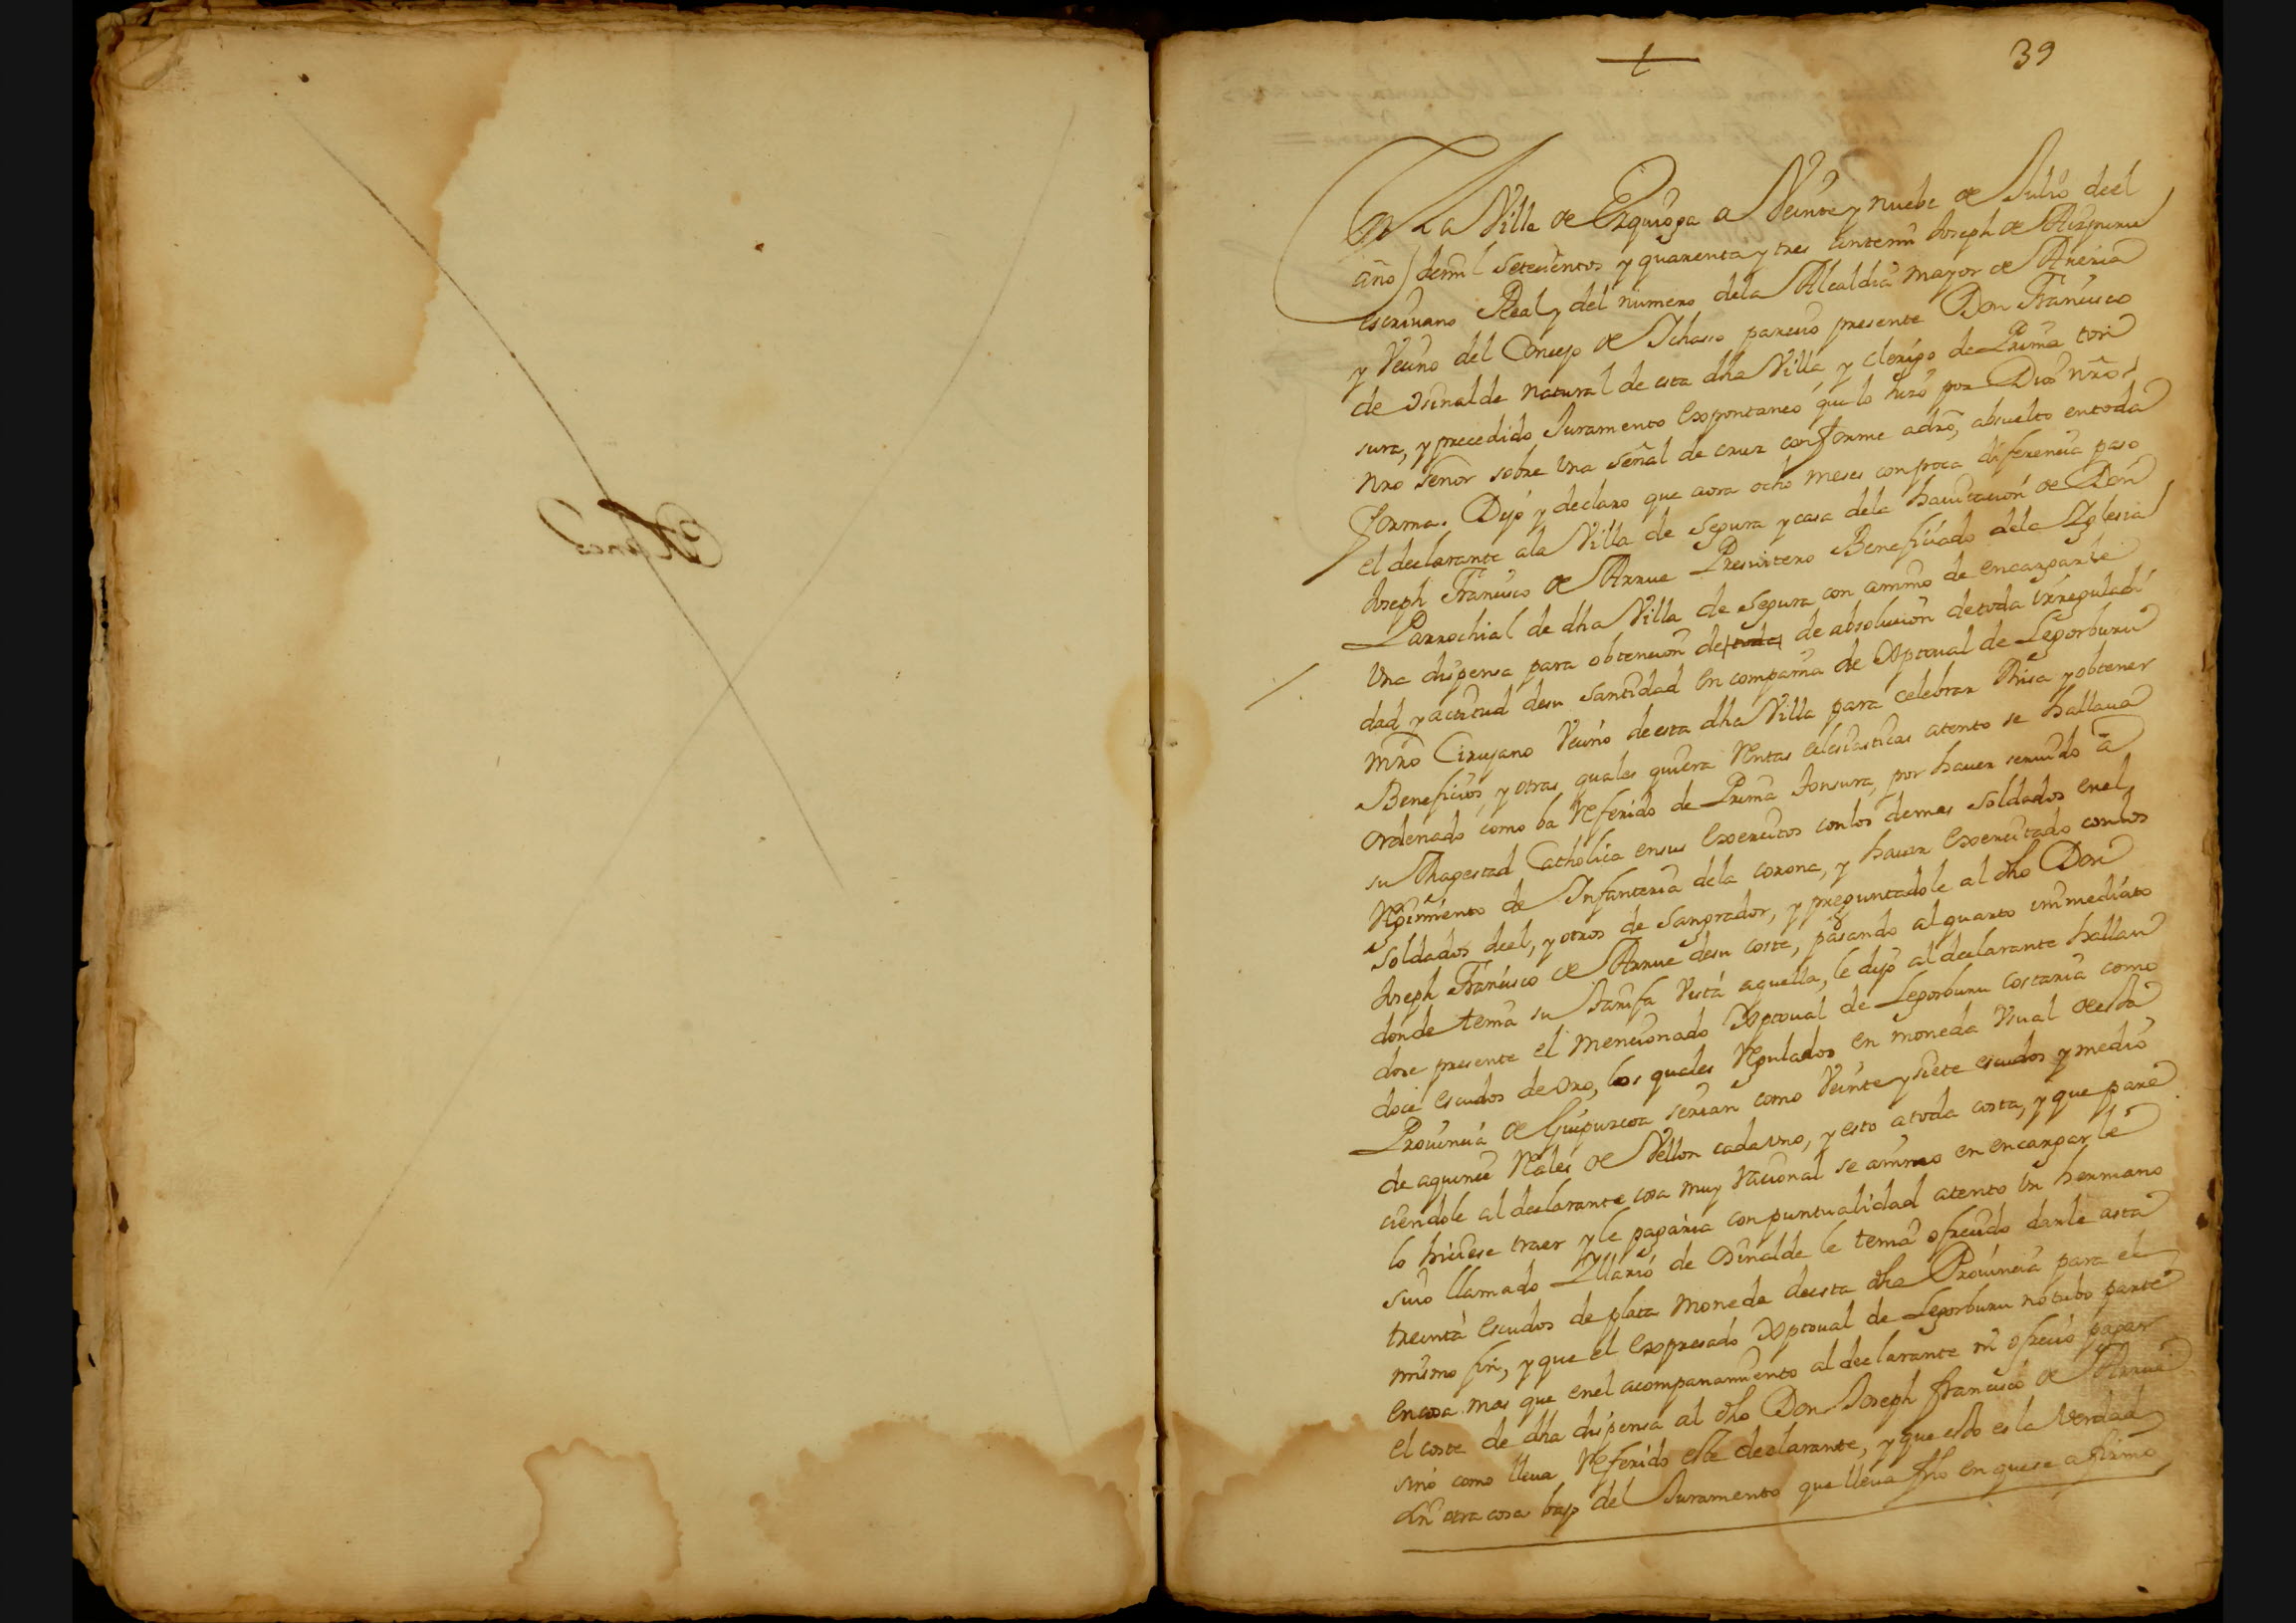 39
En La Villa de Ezquioga a Veinte y nuebe de Julio deel
año de mil setecientos y quarenta y tres ante mi Joseph de Aizpuru
escriuano Real y del numero dela Alcaldia mayor de Areria
y Vecino del Concejo de Ichaso parecio presente Don Francisco
de Osinalde natural de esta dha Villa y clerigo de Prima ton
sura, y precedido Juramento expontaneo que lo hizo por Dios nro
nro señor sobre vna señal de cruz conforme adro, absuelto entoda
forma. Dijo y declaro que aora ocho meses conpoca diferencia paso
el declarante ala Villa de Segura y casa dela hauitacion de Don
Joseph Francisco de Arrue Presvitero Beneficiado dela Yglesia
Parrochial de dha Villa de Segura con animo de encargarle
Vna dispensa para obtencion de todas de absolucion detoda irregulari
dad y actitud desu santidad en compania de Xptoual de Legorburu
mro Cirujano Vecino de esta dha Villa para celebrar Misa y obtener
Beneficios, y otras quales quiera Rentas eclesiasticas atento se hallaua
ordenado como ba Referido de Prima tonsura, por hauer seruido a
su Magestad Catholica ensus exercitos conlos demas soldados enel
Regimiento de Infanteria dela corona, y hauer exercitado conlos
soldados deel, y otros de sangrador, y preguntadole al dho Don
Joseph Francisco de Arrue desu coste, pasando al quarto immediato
donde tenia su tarifa vista aquella, le dijo al declarante hallan
dose presente el mencionado Xptoual de Legorburu costaria como
doce escudos de oro, los quales Regulados en moneda vsual de esta
Prouincia de Guipuzcoa serian como Veinte y siete escudos y medio
de aquince Reales de Vellon cada vno, y esto atoda costa, y que pare
ciendole al declarante cosa muy Racional se animo en encargarle
lo hiciese traer y le pagaria con puntualidad atento vn hermano
suio llamado Yllario de Osinalde le tenia ofrecido darle asta
treinta escudos de plata moneda deesta dha Prouincia para el
mismo fin, y que el expresado Xptoual de Legorburu no tubo parte
en cosa mas que enel acompañamiento al declarante ni ofrecio pagar
el coste de dha dispensa al dho Don Joseph francisco de Arrue
sino como lleua Referido este declarante, y que esto es la Verdad
sin otra cosa bajo del Juramento que lleua fho en que se afirmo